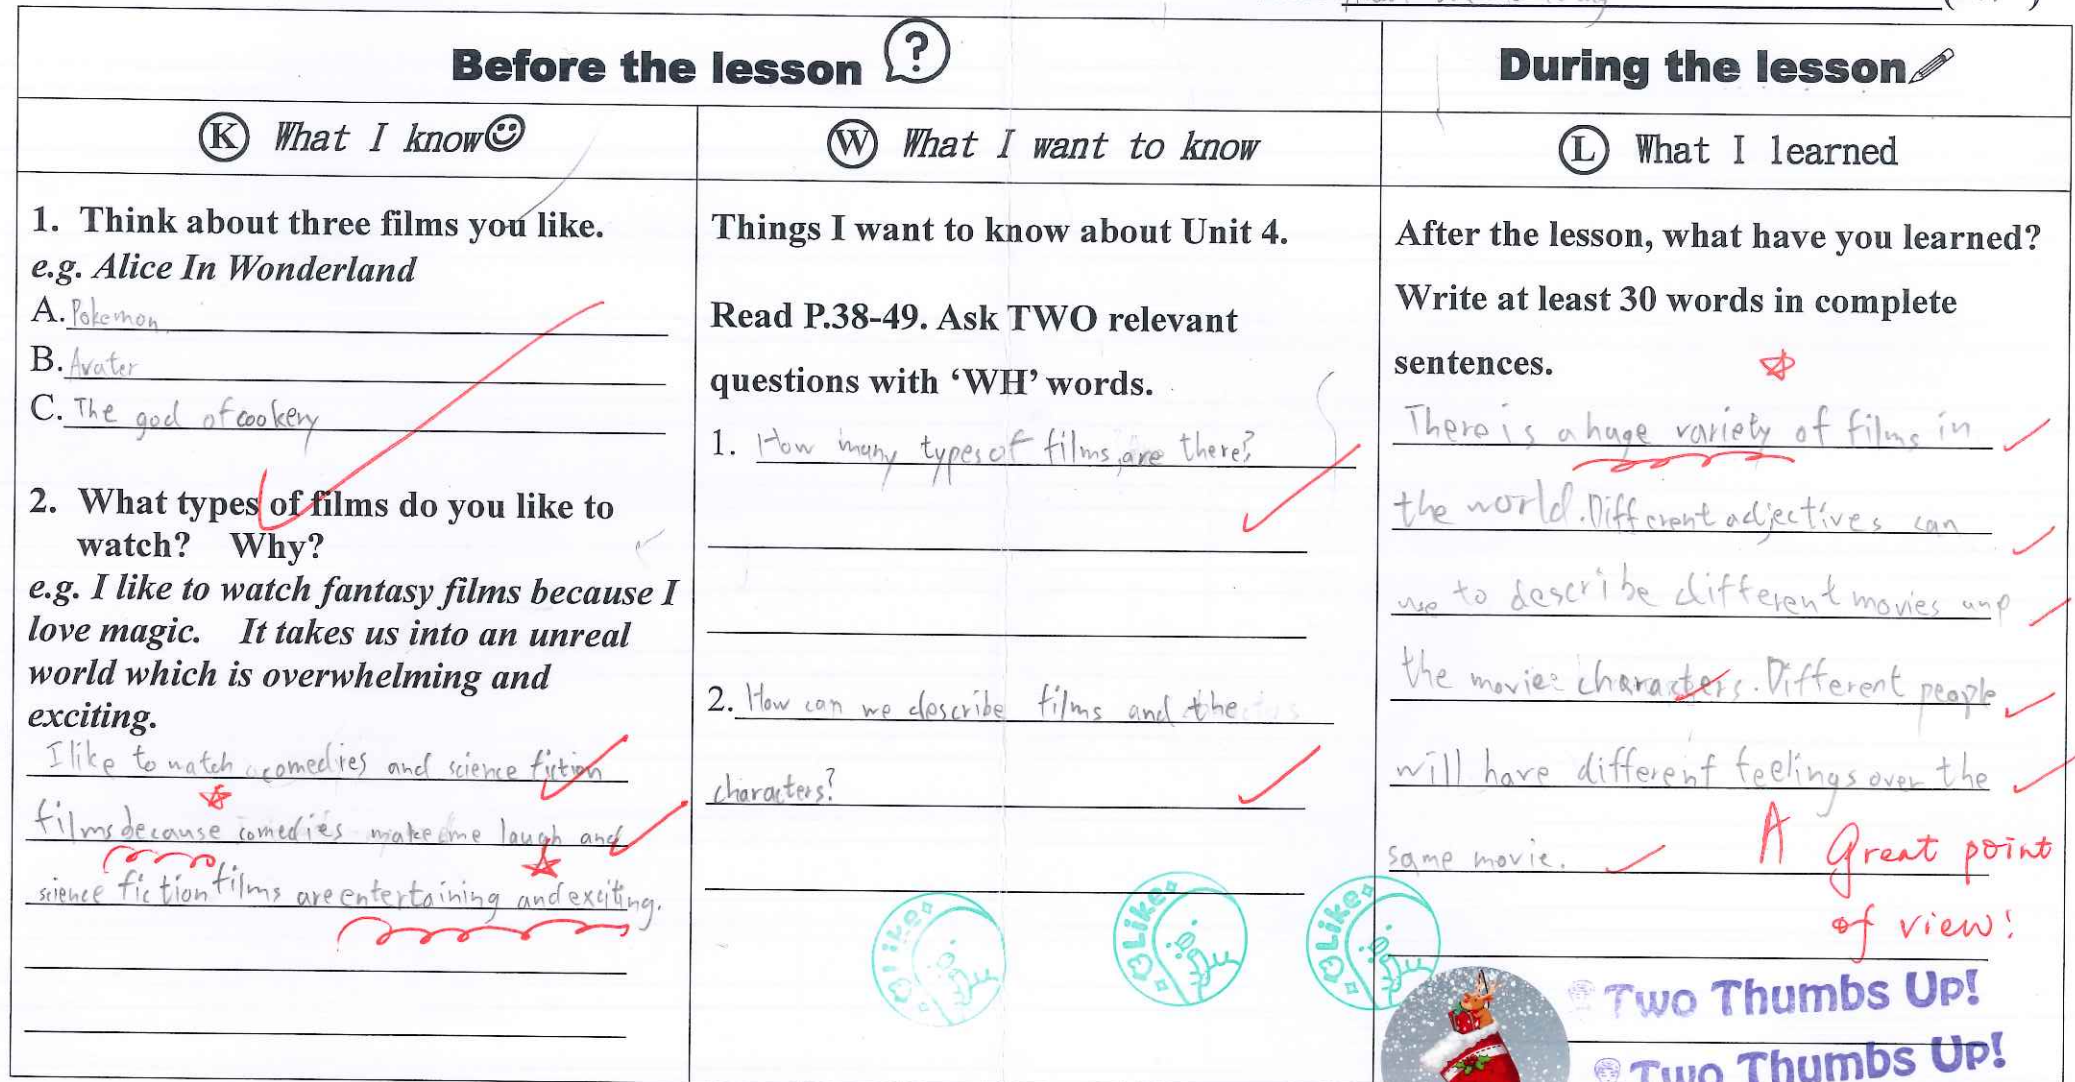 Before the lesson ?
During the lesson
K What I know
W What I want to know
L What I learned
1. Think about three films you like.
e.g. Alice In Wonderland
A. Pokemon
B. Avater
C. The god of cookery
2. What types of films do you like to
watch? Why?
e.g. I like to watch fantasy films because I
love magic. It takes us into an unreal
world which is overwhelming and
exciting.
I like to watch comedies and science fiction
films because comedies make me laugh and
science fiction films are entertaining and exciting.
Things I want to know about Unit 4.
Read P.38-49. Ask TWO relevant
questions with ‘WH’ words.
1. How many types of films are there?
2. How can we describe films and the
characters?
I Like
Like
Like
After the lesson, what have you learned?
Write at least 30 words in complete
sentences.
There is a huge variety of films in
the world. Different adjectives can
use to describe different movies and
the movies characters. Different people
will have different feelings over the
same movie.
A Great point
of view!
Two Thumbs Up!
Two Thumbs Up!